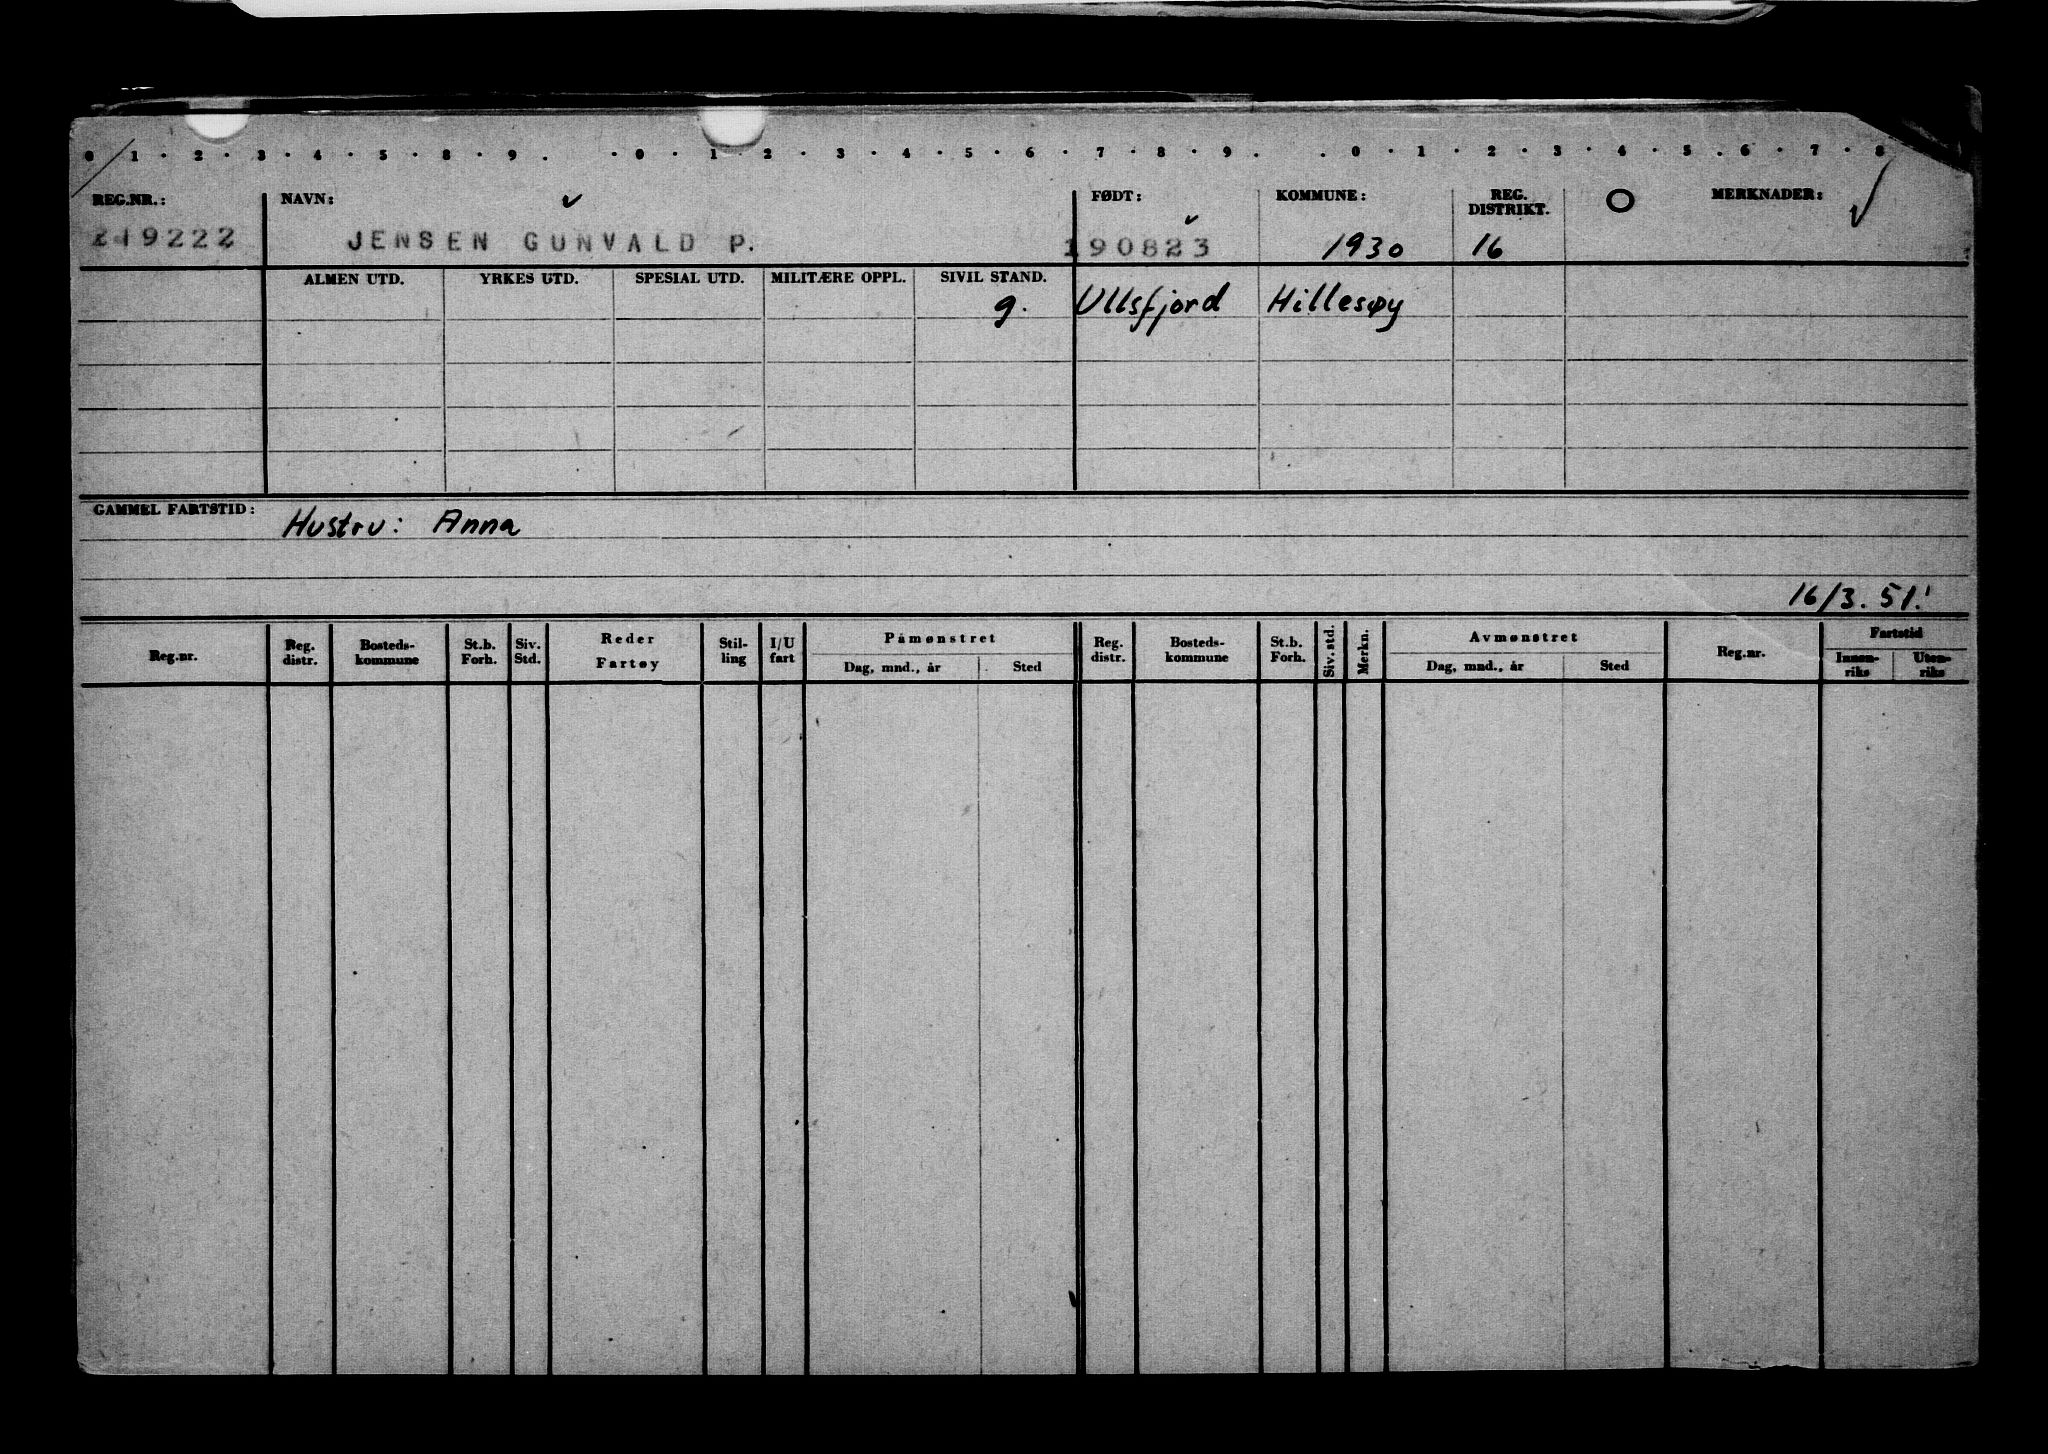 0 1 · 2 · 3 · 4 · 5 · 8 · 9 . · 0 · 1 · 2 · 3 · 4 · 5 · 6 · 7 · 8 · 9 . . 0 · 1 · 2 · 3 · 4 · 5 . 6 · 7 · 8
REG.NR.: NAVN: FØDT: KOMMUNE: REG. DISTRIKT. O MERKNADER:
219222 JENSEN GUNVALD P. 190823 1930 16
ALMEN UTD. YRKES UTD. SPESIAL UTD. MILITÆRE OPPL. SIVIL STAND.
g. Ullsfjord Hillesøy
GAMMEL FARTSTID: Hustru: Anna
16/3. 51.
Reg.nr. Reg. distr. Bosteds-kommune St.b. Forh. Siv. Std. Reder Fartøy Stil-ling I/U fart Påmønstret Dag, mnd., år Sted Reg. distr. Bosteds-kommune St.b. Forh. Siv. std. Merkn. Avmønstret Dag, mnd., år Sted Reg.nr. Fartstid Innen-riks Uten-riks